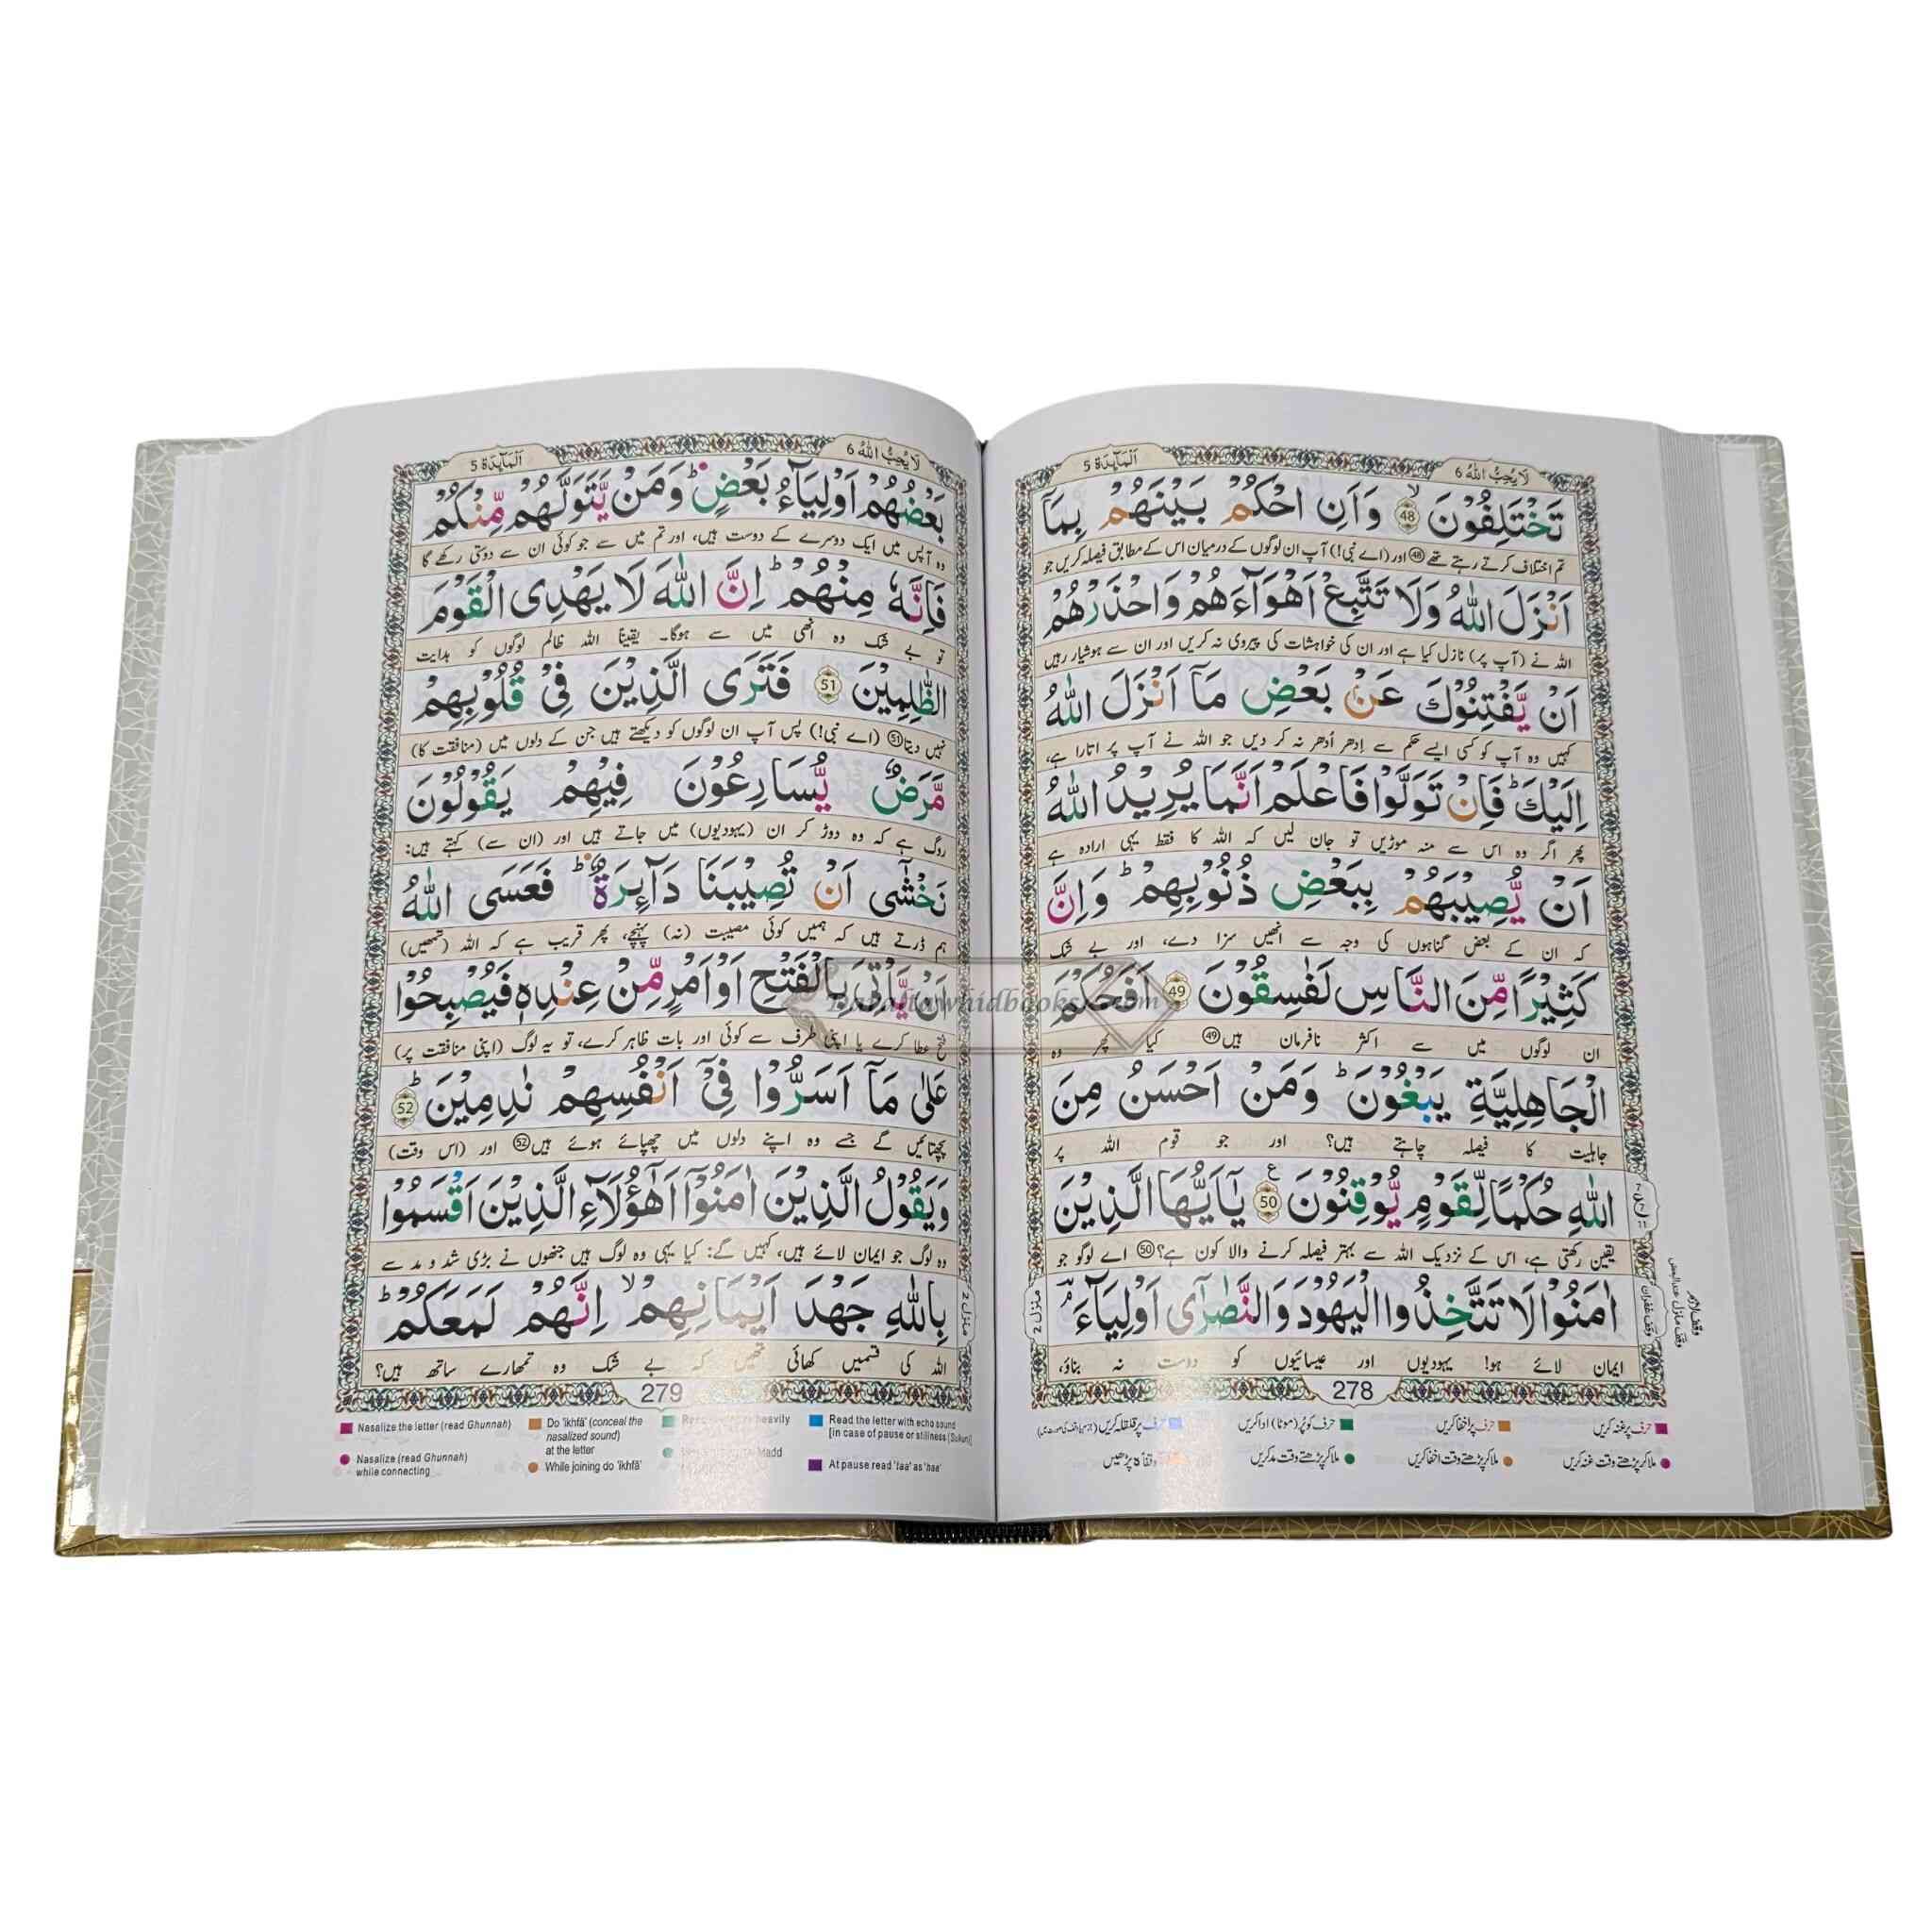 لَا یُحِبُّ اللّٰهُ 6
اَلْمَآىِٕدَة 5
تَخْتَلِفُوْنَ ۙ 48 وَاَنِ احْكُمْ بَیْنَهُمْ بِمَاۤ
تم اختلاف کرتے رہتے تھے 48 اور (اے نبی!) آپ ان لوگوں کے درمیان اس کے مطابق فیصلہ کریں جو
اَنْزَلَ اللّٰهُ وَلَا تَتَّبِعْ اَهْوَآءَهُمْ وَاحْذَرْهُمْ
اللہ نے (آپ پر) نازل کیا ہے اور ان کی خواہشات کی پیروی نہ کریں اور ان سے ہوشیار رہیں
اَنْ یَّفْتِنُوْكَ عَنْۢ بَعْضِ مَاۤ اَنْزَلَ اللّٰهُ
کہیں وہ آپ کو کسی ایسے حکم سے اِدھر اُدھر نہ کر دیں جو اللہ نے آپ پر اتارا ہے،
اِلَیْكَ ؕ فَاِنْ تَوَلَّوْا فَاعْلَمْ اَنَّمَا یُرِیْدُ اللّٰهُ
پھر اگر وہ اس سے منہ موڑیں تو جان لیں کہ اللہ کا فقط یہی ارادہ ہے
اَنْ یُّصِیْبَهُمْ بِبَعْضِ ذُنُوْبِهِمْ ؕ وَاِنَّ
کہ ان کے بعض گناہوں کی وجہ سے انھیں سزا دے، اور بے شک
كَثِیْرًا مِّنَ النَّاسِ لَفٰسِقُوْنَ 49 اَفَحُكْمَ
ان لوگوں میں سے اکثر نافرمان ہیں 49 کیا پھر وہ
الْجَاهِلِیَّةِ یَبْغُوْنَ ؕ وَمَنْ اَحْسَنُ مِنَ
جاہلیت کا فیصلہ چاہتے ہیں؟ اور جو قوم اللہ پر
اللّٰهِ حُكْمًا لِّقَوْمٍ یُّوْقِنُوْنَ 50 ع یٰۤاَیُّهَا الَّذِیْنَ
یقین رکھتی ہے، اس کے نزدیک اللہ سے بہتر فیصلہ کرنے والا کون ہے؟ 50 اے لوگو جو
اٰمَنُوْا لَا تَتَّخِذُوا الْیَهُوْدَ وَالنَّصٰرٰۤی اَوْلِیَآءَ ۘ
ایمان لائے ہو! یہودیوں اور عیسائیوں کو دوست نہ بناؤ،
منزل 2
وقف لازم
278
حرف پر غنہ کریں
حرف پر اخفا کریں
حرف کو پُر (موٹا) ادا کریں
حرف پر قلقلہ کریں
ملا کر پڑھتے وقت غنہ کریں
ملا کر پڑھتے وقت اخفا کریں
ملا کر پڑھتے وقت مد کریں
لَا یُحِبُّ اللّٰهُ 6
اَلْمَآىِٕدَة 5
بَعْضُهُمْ اَوْلِیَآءُ بَعْضٍ ؕ وَمَنْ یَّتَوَلَّهُمْ مِّنْكُمْ
وہ آپس میں ایک دوسرے کے دوست ہیں، اور تم میں سے جو کوئی ان سے دوستی رکھے گا
فَاِنَّهٗ مِنْهُمْ ؕ اِنَّ اللّٰهَ لَا یَهْدِی الْقَوْمَ
تو بے شک وہ انھی میں سے ہوگا۔ یقیناً اللہ ظالم لوگوں کو ہدایت
الظّٰلِمِیْنَ 51 فَتَرَی الَّذِیْنَ فِیْ قُلُوْبِهِمْ
نہیں دیتا 51 (اے نبی!) پس آپ ان لوگوں کو دیکھتے ہیں جن کے دلوں میں (منافقت کا)
مَّرَضٌ یُّسَارِعُوْنَ فِیْهِمْ یَقُوْلُوْنَ
روگ ہے کہ وہ دوڑ کر ان (یہودیوں) میں جاتے ہیں اور (ان سے) کہتے ہیں:
نَخْشٰۤی اَنْ تُصِیْبَنَا دَآىِٕرَةٌ ؕ فَعَسَی اللّٰهُ
ہم ڈرتے ہیں کہ ہمیں کوئی مصیبت (نہ) پہنچے، پھر قریب ہے کہ اللہ (تمھیں)
اَنْ یَّاْتِیَ بِالْفَتْحِ اَوْ اَمْرٍ مِّنْ عِنْدِهٖ فَیُصْبِحُوْا
فتح عطا کرے یا اپنی طرف سے کوئی اور بات ظاہر کرے، تو یہ لوگ (اپنی منافقت پر)
عَلٰی مَاۤ اَسَرُّوْا فِیْۤ اَنْفُسِهِمْ نٰدِمِیْنَ ؕ 52
پچھتائیں گے جسے وہ اپنے دلوں میں چھپائے ہوئے ہیں 52 اور (اس وقت)
وَیَقُوْلُ الَّذِیْنَ اٰمَنُوْۤا اَهٰۤؤُلَآءِ الَّذِیْنَ اَقْسَمُوْا
وہ لوگ جو ایمان لائے ہیں، کہیں گے: کیا یہی وہ لوگ ہیں جنھوں نے بڑی شد و مد سے
بِاللّٰهِ جَهْدَ اَیْمَانِهِمْ ۙ اِنَّهُمْ لَمَعَكُمْ ؕ
اللہ کی قسمیں کھائی تھیں کہ بے شک وہ تمھارے ساتھ ہیں؟
منزل 2
279
Nasalize the letter (read Ghunnah)
Do 'ikhfā' (conceal the nasalized sound) at the letter
heavily
Read the letter with echo sound
[in case of pause or stillness (Sukun)]
Nasalize (read Ghunnah) while connecting
While joining do 'ikhfā'
Madd
At pause read 'taa' as 'haa'